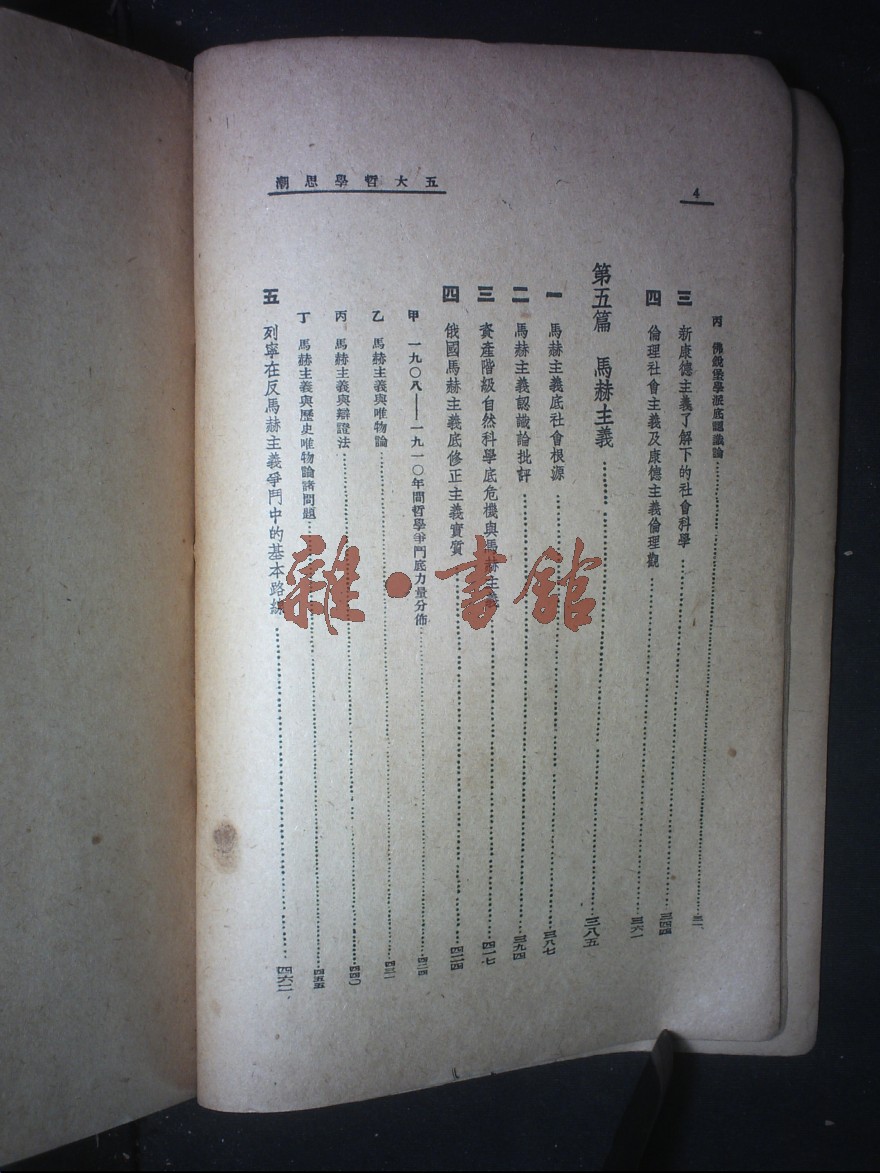 五大哲學思潮
4
丙 佛銳堡學派底認識論
三 新康德主義了解下的社會科學……三四四
四 倫理社會主義及康德主義倫理觀……三六一
第五篇 馬赫主義……三八五
一 馬赫主義底社會根源……三八七
二 馬赫主義認識論批評……三九四
三 資產階級自然科學底危機與馬赫主義……四一七
四 俄國馬赫主義底修正主義實質……四二四
甲 一九〇八——一九一〇年間哲學爭鬥底力量分佈……四二四
乙 馬赫主義與唯物論……四三一
丙 馬赫主義與辯證法……四四〇
丁 馬赫主義與歷史唯物論諸問題……四五五
五 列寧在反馬赫主義爭鬥中的基本路線……四六二
雜·書館